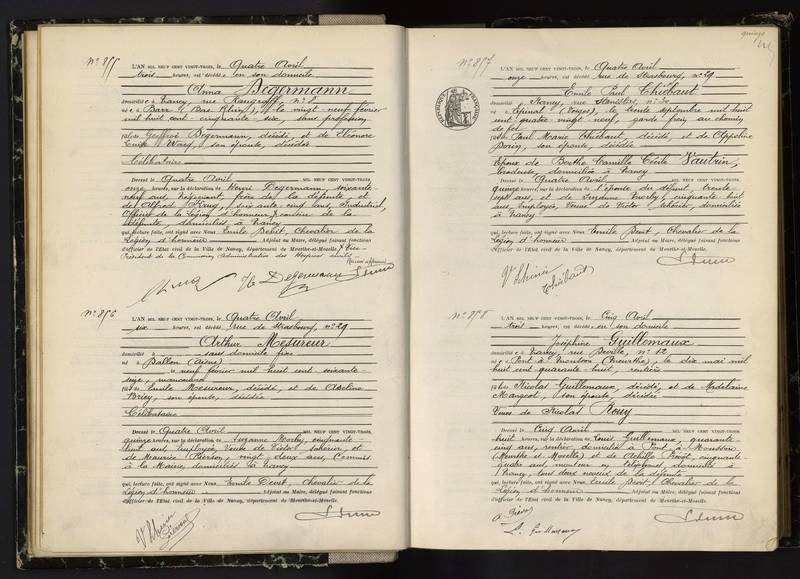 N° 855
L'AN MIL NEUF CENT VINGT-TROIS, le Quatre Avril
trois heures, est décédée en son domicile
Anna Degermann
domiciliée à Nancy, rue n° 8
née à Barr (Bas Rhin), le vingt-neuf février
mil huit cent cinquante-six, sans profession
fille de Geoffroi Degermann, décédé, et de Eléonore
son épouse, décédée
Célibataire
Dressé le Quatre Avril MIL NEUF CENT VINGT-TROIS,
onze heures, sur la déclaration de Henri Degermann, soixante-
neuf ans, Négociant, frère de la défunte, et
de Alfred soixante-cinq ans, Industriel,
Officier de la Légion d'honneur, cousin de la
défunte, domiciliés à Nancy
qui, lecture faite, ont signé avec Nous Emile Chevalier de la
Légion d'honneur Adjoint au Maire, délégué faisant fonctions
d'Officier de l'Etat civil de la Ville de Nancy, département de Meurthe-et-Moselle. Vice-
Président de la Commission Administrative des Hospices civils
H. Degermann
N° 856
L'AN MIL NEUF CENT VINGT-TROIS, le Quatre Avril
six heures, est décédé rue de Strasbourg, n° 29
Arthur Mesureur
domicilié sans domicile fixe
né à (Aisne)
le neuf février mil huit cent soixante-
seize, manoeuvre
fils de Emile Mesureur, décédé, et de
son épouse, décédée
Célibataire
Dressé le Quatre Avril MIL NEUF CENT VINGT-TROIS,
quinze heures, sur la déclaration de Suzanne cinquante-
huit ans, employée, Veuve de Victor et
de Maurice vingt-deux ans, Commis
à la Mairie, domiciliés à Nancy
qui, lecture faite, ont signé avec Nous Emile Chevalier de la
Légion d'honneur Adjoint au Maire, délégué faisant fonctions
d'Officier de l'Etat civil de la Ville de Nancy, département de Meurthe-et-Moselle.
N° 857
L'AN MIL NEUF CENT VINGT-TROIS, le Quatre Avril
onze heures, est décédé rue de Strasbourg, n° 29
Emile Paul Thiébaut
domicilié à Nancy, rue Stanislas, n° 30
né à Epinal (Vosges), le trente septembre mil huit
cent quatre-vingt-neuf, garde-frein au chemin
de fer
fils de Paul Marie Thiébaut, décédé, et de Appoline
son épouse, décédée
Epoux de Berthe Camille Cécile Vautrin,
brodeuse, domiciliée à Nancy
Dressé le Quatre Avril MIL NEUF CENT VINGT-TROIS,
quinze heures, sur la déclaration de l'épouse du défunt, trente-
sept ans, et de Suzanne cinquante-huit
ans, employée, Veuve de Victor domiciliées
à Nancy
qui, lecture faite, ont signé avec Nous Emile Chevalier de la
Légion d'honneur Adjoint au Maire, délégué faisant fonctions
d'Officier de l'Etat civil de la Ville de Nancy, département de Meurthe-et-Moselle.
Thiébaut
N° 858
L'AN MIL NEUF CENT VINGT-TROIS, le Cinq Avril
trois heures, est décédée en son domicile
Joséphine Guillemaux
domiciliée à Nancy, rue n° 12
née à Pont à Mousson (Meurthe), le dix mai mil
huit cent quarante-huit, rentière
fille de Nicolas Guillemaux, décédé, et de Madeleine
Mangeot, son épouse, décédée
Veuve de Nicolas Remy
Dressé le Cinq Avril MIL NEUF CENT VINGT-TROIS,
huit heures, sur la déclaration de Louis Guillemaux, quarante-
cinq ans, rentier, domicilié à Pont à Mousson
(Meurthe et Moselle) et de Achille cinquante-
quatre ans, monteur en téléphones, domicilié à
Nancy, tous deux neveux de la défunte
qui, lecture faite, ont signé avec Nous Emile Chevalier de la
Légion d'honneur Adjoint au Maire, délégué faisant fonctions
d'Officier de l'Etat civil de la Ville de Nancy, département de Meurthe-et-Moselle.